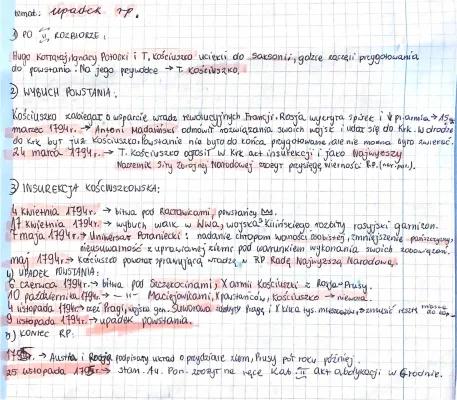 temat: upadek rp.
1) PO II ROZBIORZE:
Hugo Kołłątaj, Ignacy Potocki i T. Kościuszko uciekli do Saksonii, gdzie zaczęli przygotowania
do powstania. Na jego przywódcę → T. Kościuszko.
2) WYBUCH POWSTANIA:
Kościuszko zabiegał o wsparcie władz rewolucyjnych Francji. Rosja wykryła spisek i
marzec 1794r. → Antoni Madaliński odmówił rozwiązania swoich wojsk i udał się do Krk. W drodze
do Krk był już Kościuszko. Powstanie nie było do końca przygotowane, ale nie można było zwlekać.
24 marca 1794r. → T. Kościuszko ogłosił w Krk akt insurekcji i jako Najwyższy
Naczelnik Siły Zbrojnej Narodowej złożył przysięgę wierności RP.
3) INSUREKCJA KOŚCIUSZKOWSKA:
4 kwietnia 1794r. → bitwa pod Racławicami, powstańcy
17 kwietnia 1794r. → wybuch walk w Wwa, wojska Kilińskiego rozbiły rosyjski garnizon.
7 maja 1794r. → Uniwersał Połaniecki: nadanie chłopom wolności osobistej, zmniejszenie pańszczyzny,
nieusuwalność z uprawianej ziemi pod warunkiem wykonania swoich zobowiązań.
maj 1794r. → Kościuszko powołał sprawującą władzę w RP Radę Najwyższą Narodową.
4) UPADEK POWSTANIA:
6 czerwca 1794r. → bitwa pod Szczekocinami, X armii Kościuszki z Rosja+Prusy.
10 października 1794r. → -||- Maciejowicami, X powstańców, Kościuszko → niewola.
4 listopada 1794r. → rzeź Pragi, wojska gen. Suworowa zdobyły Pragę, tys. mieszkańców, zmusić resztę miasta
9 listopada 1794r. → upadek powstania.
5) KONIEC RP:
1795r. → Austria i Rosja podpisały układ o przydziale ziem, Prusy pół roku później.
25 listopada 1795r. → Stan. Au. Pon. złożył na ręce Kat. II akt abdykacji w Grodnie.